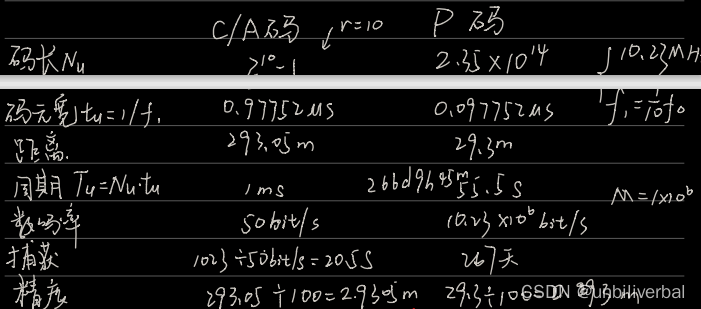 C/A码 r=10 P码
码长Nu 2^10-1 2.35×10^14 10.23MH
码元宽tu=1/f1 0.97752μs 0.097752μs f1=1/10f0
距离 293.05m 29.3m
周期Tu=Nu·tu 1ms 266d9h45m55.5s M=1×10^6
数码率 50bit/s 10.23×10^6bit/s
捕获 1023÷50bit/s=20.5s 267天
精度 293.05÷100=2.9305m 29.3÷100=0.293m
CSDN @unbiliverbal